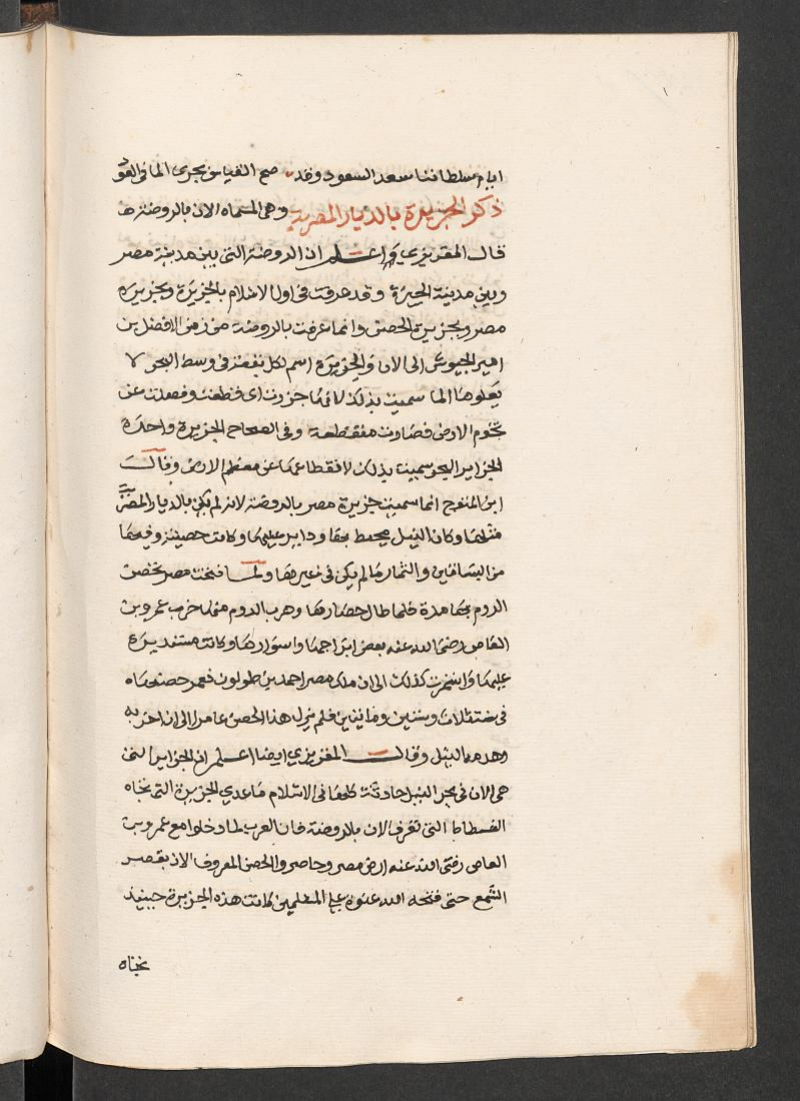 ايام سلطاننا سعد السعود وقد صح القياس بجرى الما فى العود
ذكر الجزيرة بالديار المصرية وهى المسماه الان بالروضة
قال المقريزي واعلم ان الروضة التى بين مدينة مصر
وبين مدينة الجيزة وقد عرفت فى اول الاسلام بالجزيرة وبجزيرة
مصر وبجزيرة الحصن وانما عرفت بالروضة من زمن الافضل بن
امير الجيوش الى الان والجزيرة اسم لكل بقعة فى وسط البحر لا
يعلوها الما سميت بذلك لانها جزرت اى قطعت وفصلت عن
تخوم الارض فصارت منقطعة وفى الصحاح الجزيرة واحدة
الجزاير البحر سميت بذلك لانقطاعها عن معظم الارض وقال
ابن المتوج انما سميت جزيرة مصر بالروضة لانه لم يكن بالديار المصرية
مثلها وكان النيل محيط بها وداير عليها وكانت حصينة وفيها
من البساتين والثمار مالم يكن فى غيرها ولما فتحت مصر تحصن
الروم بها مدة فلما طال حصارها وهرب الروم منها خرب عمرو بن
العاص رضى الله عنه بعض ابراجها واسوارها وكانت مستديرة
عليها واستمرت كذلك الى ان ملك مصر احمد بن طولون فعمر حصنها
فى سنة ثلاث وستين ومايتين فلم يزل هذا الحصن عامرا الى ان اخربه
وهدمه النيل وقال المقريزي ايضا اعلم ان الجزاير التى
هى الان فى بحر النيل حادثة كلها فى الاسلام ماعدي الجزيرة التى تجاه
الفسطاط التى تعرف الان بالروضة فان العرب لما دخلوا مع عمرو بن
العاص رضى الله عنه ارض مصر وحاصروا الحصن المعروف الان بقصر
الشمع حتى فتحه الله عنوة على المسلمين كانت هذه الجزيرة حينيذ
تجاه